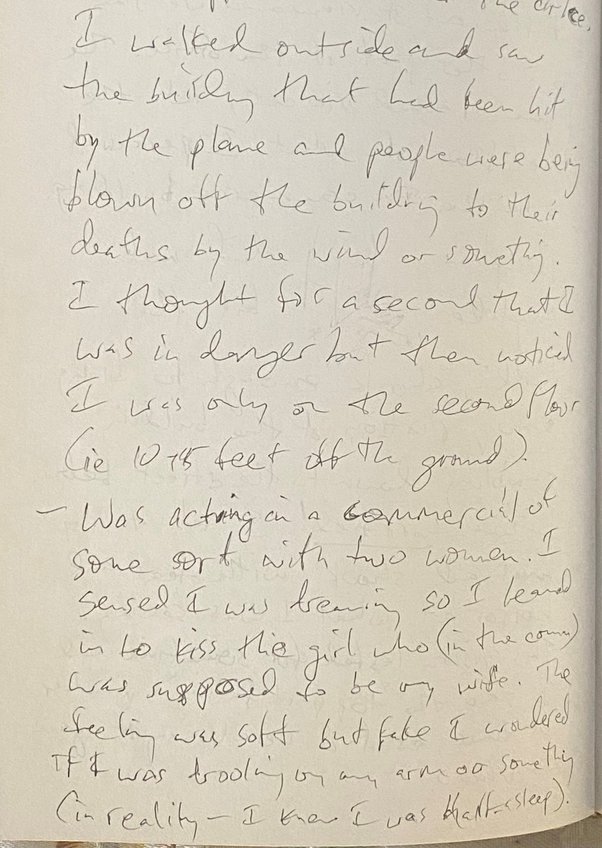 the
I walked outside and saw
the building that had been hit
by the plane and people were being
blown off the building to their
deaths by the wind or something.
I thought for a second that I
was in danger but then noticed
I was only on the second floor
(ie 10-15 feet off the ground).
- Was acting in a commercial of
some sort with two women. I
sensed I was dreaming so I leaned
in to kiss the girl who (in the comm)
was supposed to be my wife. The
feeling was soft but fake I wondered
if I was drooling on my arm or something
(in reality - I knew I was half-asleep).